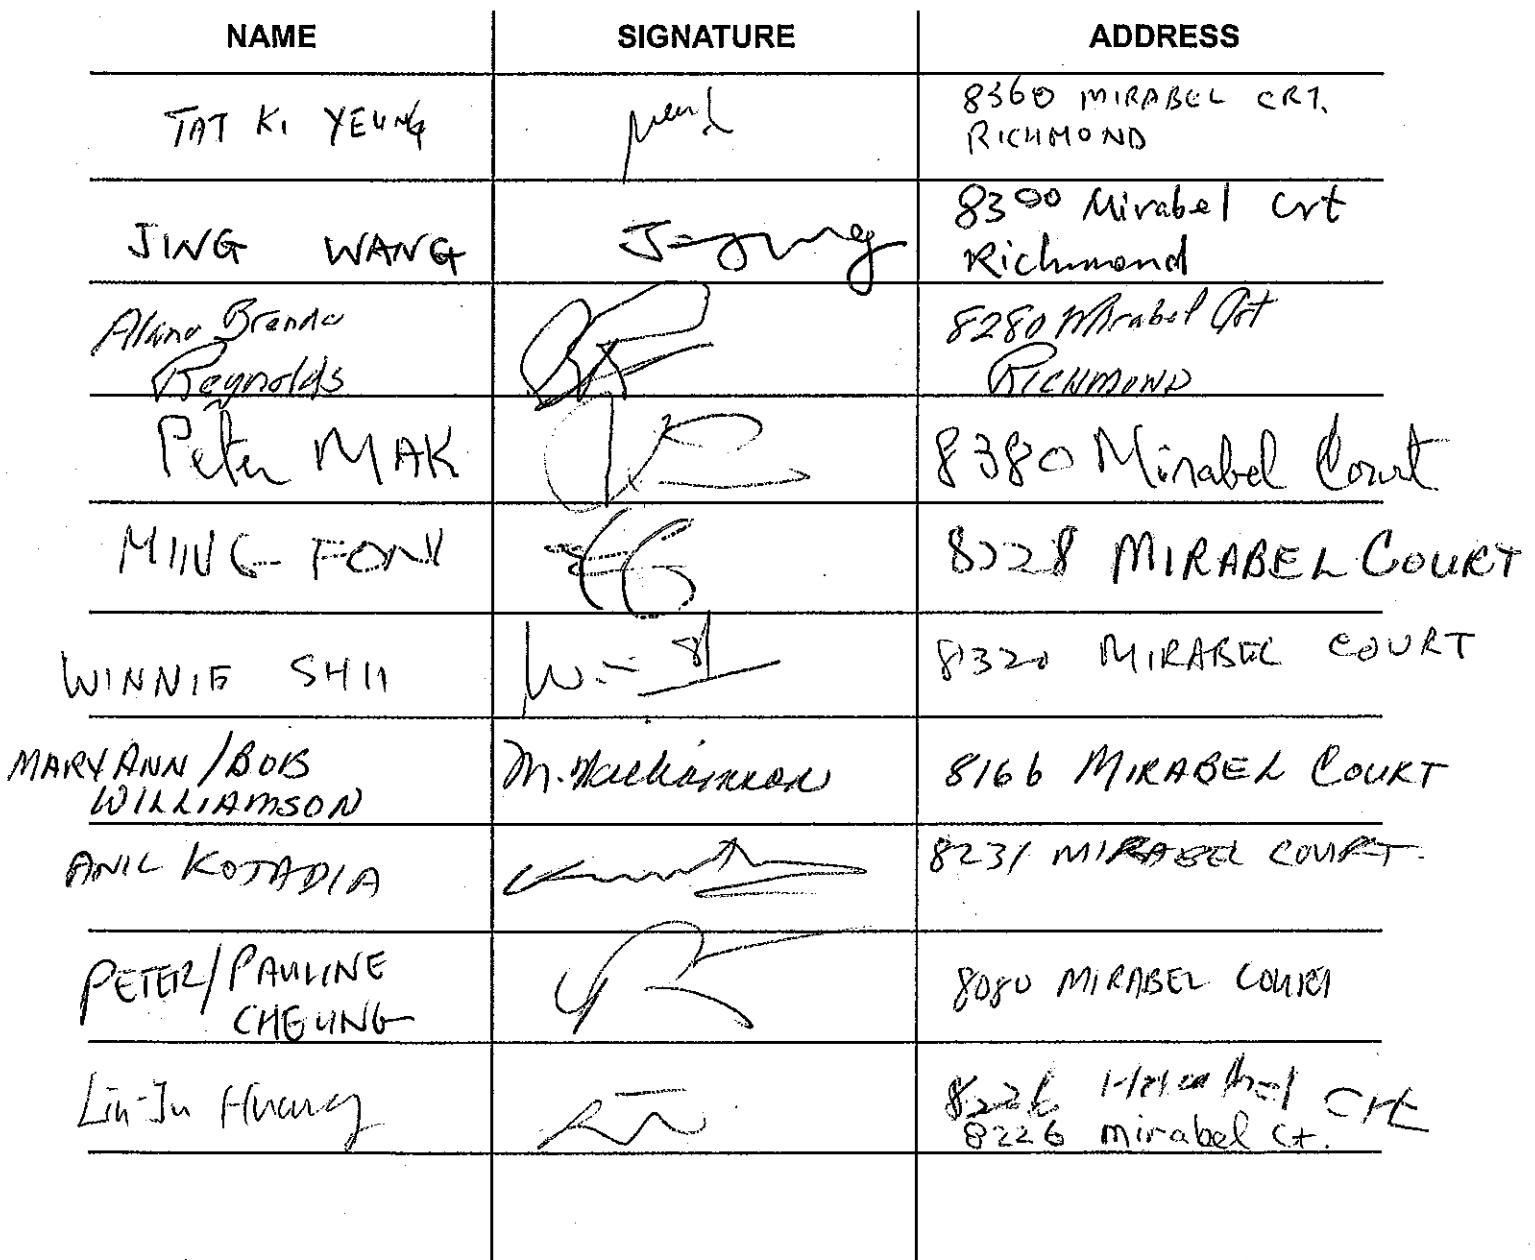 NAME SIGNATURE ADDRESS
TAT KI YEUNG 8360 MIRABEL CRT.
RICHMOND
JING WANG 8300 Mirabel Crt
Richmond
Brenda 8280 Mirabel Crt
Reynolds RICHMOND
Peter MAK 8380 Mirabel Court
MING FONG 8228 MIRABEL COURT
WINNIE SHU 8320 MIRABEL COURT
MARYANN/BOB M. Williamson 8166 MIRABEL COURT
WILLIAMSON
ANIL KOTADIA 8231 MIRABEL COURT.
PETER/PAULINE 8080 MIRABEL COURT
CHEUNG
Huang 8226 Crt
8226 mirabel Ct.